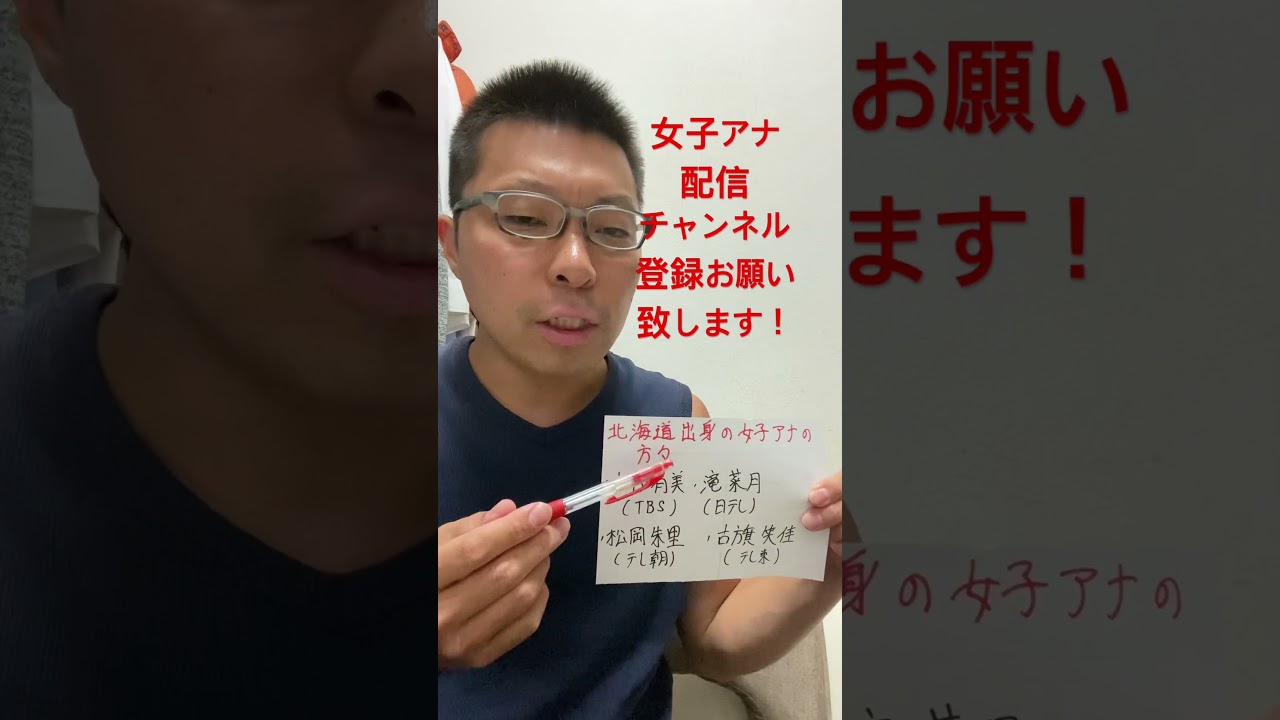 女子アナ
配信
チャンネル
登録お願い
致します！
北海道出身の女子アナの
方々
有美 ・滝菜月
(TBS) (日テレ)
・松岡朱里 ・古旗笑佳
(テレ朝) (テレ東)
お願い
ます！
身の女子アナの